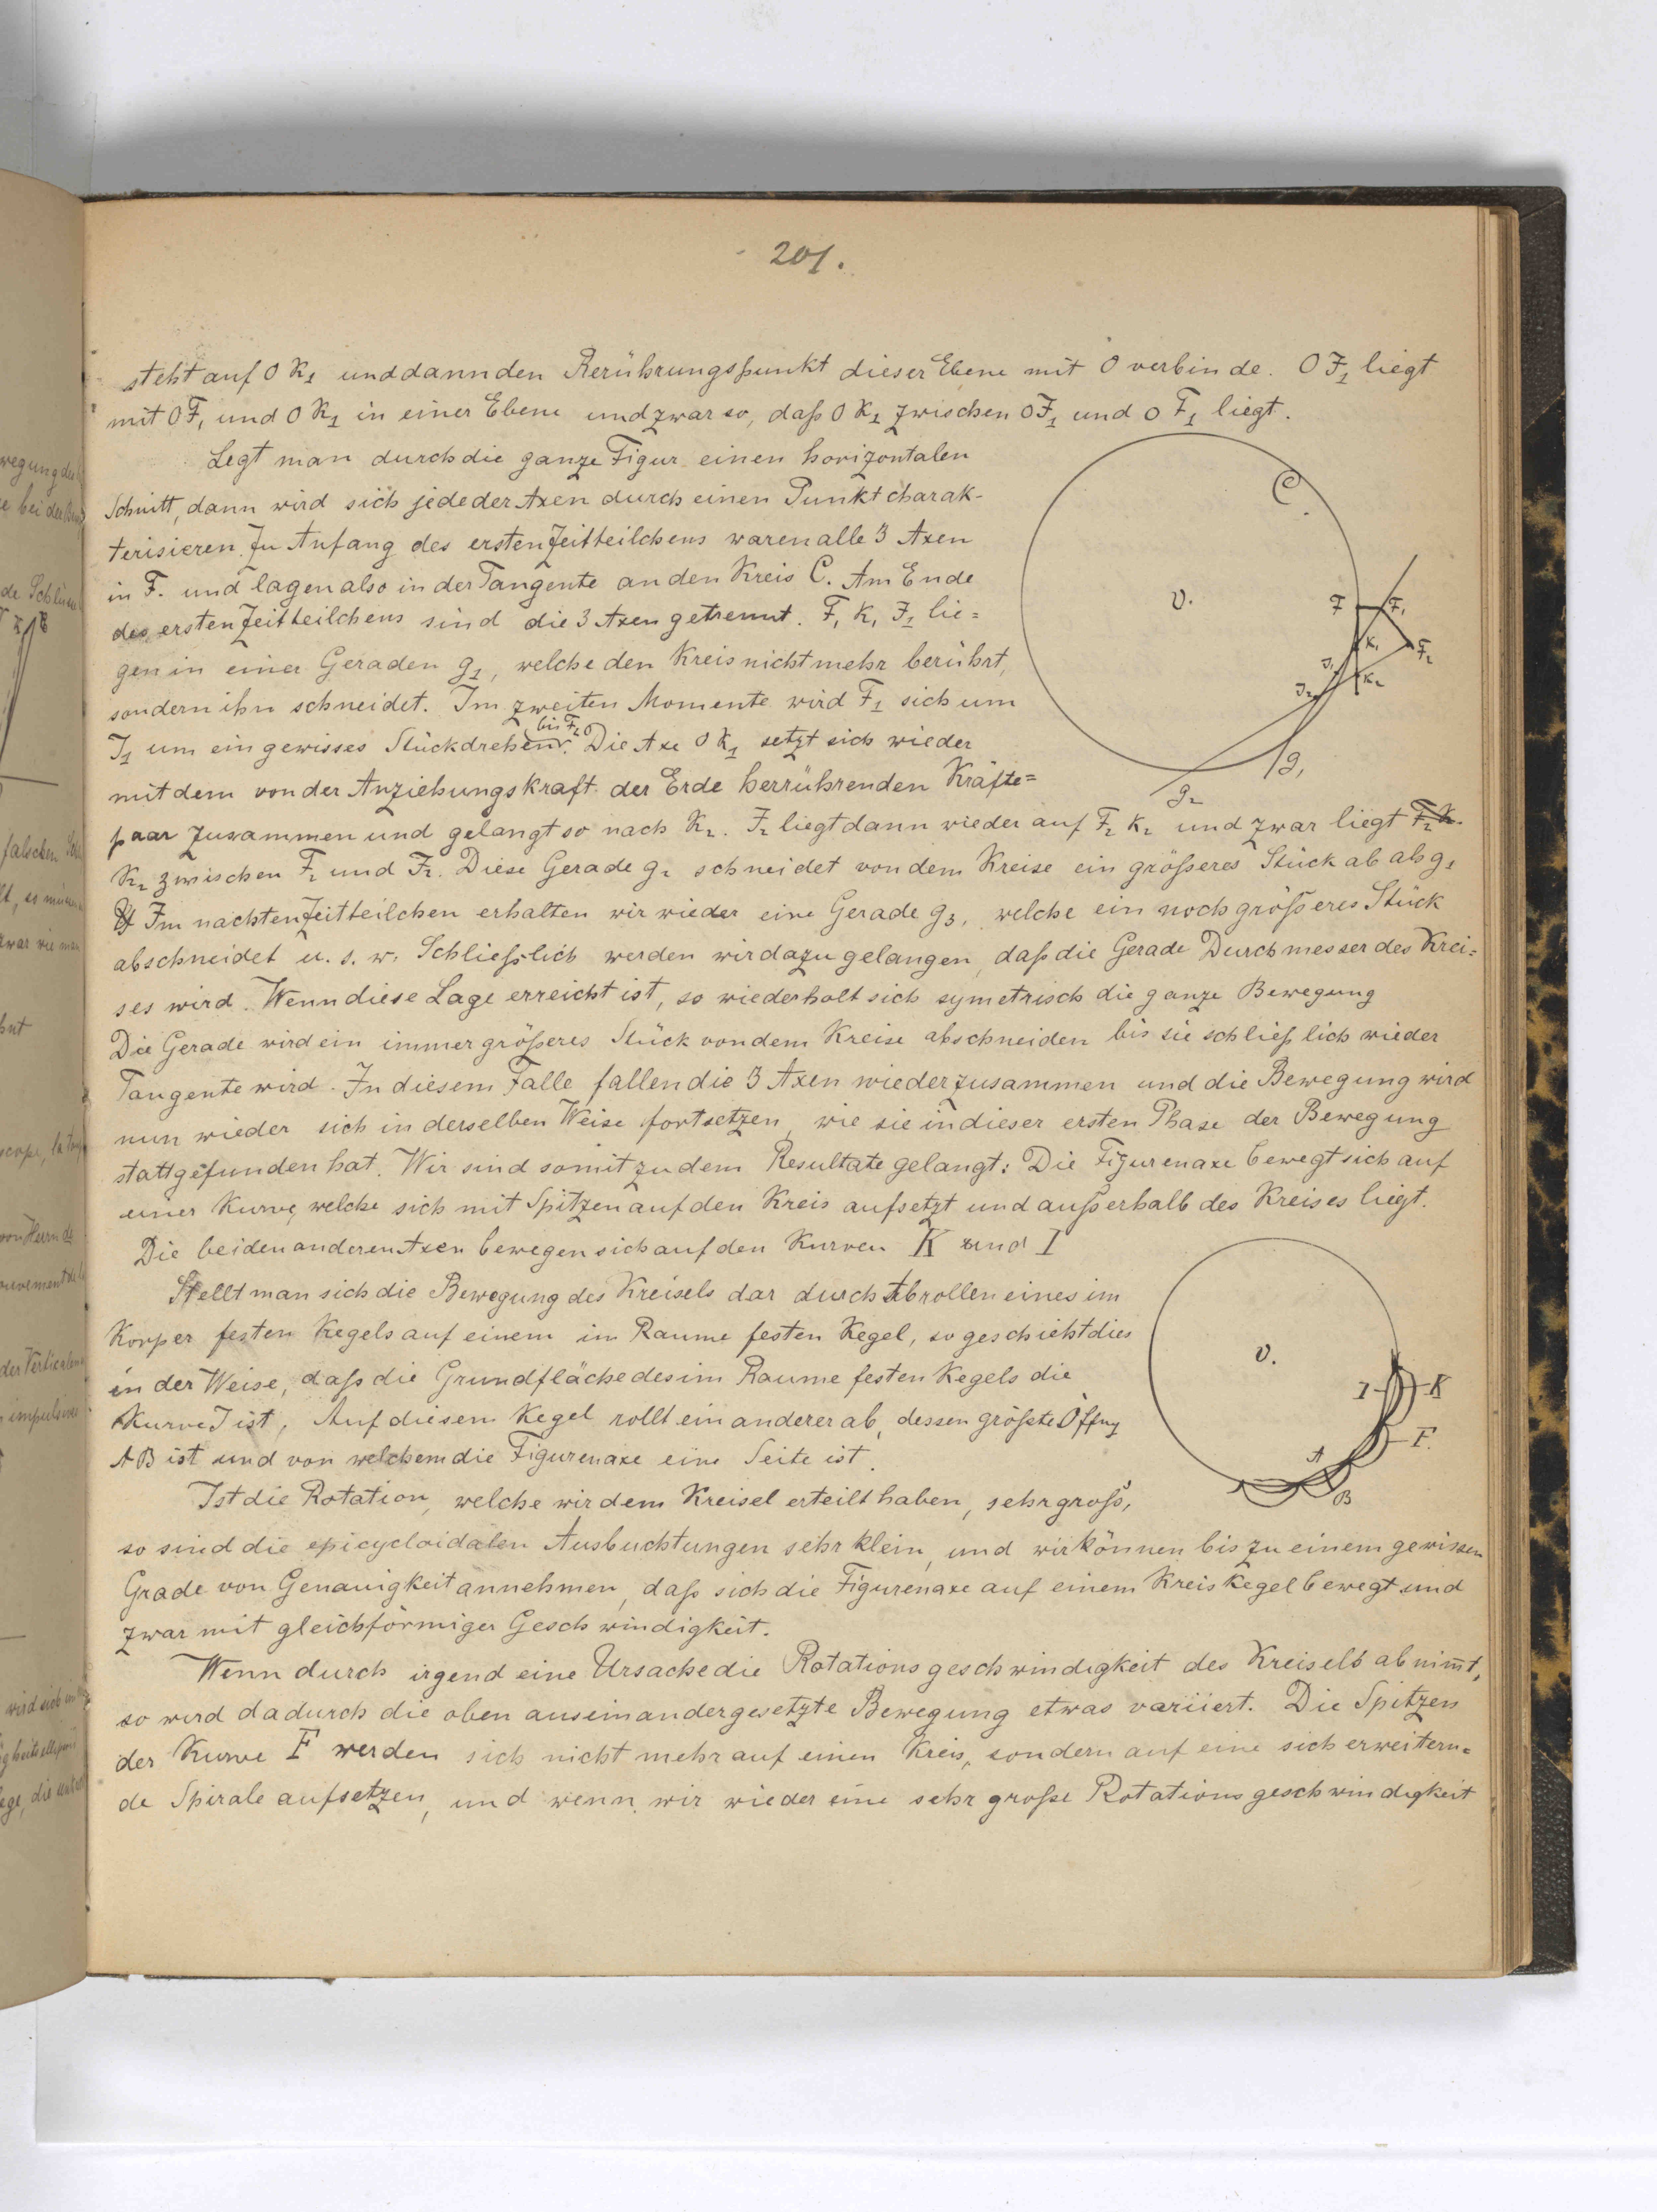 201.
steht auf O K1 und dann den Berührungspunkt dieser Ebene mit O verbinde. O J1 liegt
mit O F1 und O K1 in einer Ebene und zwar so, daß O K1 zwischen O J1 und O F1 liegt.
Legt man durch die ganze Figur einen horizontalen
Schnitt, dann wird sich jede der Axen durch einen Punkt charak-
terisieren. Zu Anfang des ersten Zeitteilchens waren alle 3 Axen
in F. und lagen also in der Tangente an den Kreis C. Am Ende
des ersten Zeittheilchens sind die 3 Axen getrennt. F1 K1 J1 lie=
gen in einer Geraden g1, welche den Kreis nicht mehr berührt,
sondern ihn schneidet. Im zweiten Momente wird F1 sich um
bis F2
J1 um ein gewisses Stück drehen. Die Axe O K1 setzt sich wieder
mit dem von der Anziehungskraft der Erde herrührenden Kräfte=
paar zusammen und gelangt so nach K2. J2 liegt dann wieder auf F2 K2 und zwar liegt F2 K
K2 zwischen F2 und J2. Diese Gerade g2 schneidet von dem Kreise ein größeres Stück ab als g1
Im nachten Zeittheilchen erhalten wir wieder eine Gerade g3, welche ein noch größeres Stück
abschneidet u. s. w. Schließlich werden wir dazu gelangen, daß die Gerade Durchmesser des Krei=
ses wird. Wenn diese Lage erreicht ist, so wiederholt sich symetrisch die ganze Bewegung
Die Gerade wird ein immer größeres Stück von dem Kreise abschneiden bis sie schließlich wieder
Tangente wird. In diesem Falle fallen die 3 Axen wieder zusammen und die Bewegung wird
nun wieder sich in derselben Weise fortsetzen, wie sie in dieser ersten Phase der Bewegung
stattgefunden hat. Wir sind somit zu dem Resultate gelangt: Die Figurenaxe bewegt sich auf
einer Kurve, welche sich mit Spitzen auf den Kreis aufsetzt und außerhalb des Kreises liegt.
Die beiden anderen Axen bewegen sich auf den Kurven K und I
Stellt man sich die Bewegung des Kreisels dar durch Abrollen eines im
Korper festen Kegels auf einem im Raume festen Kegel, so geschieht dies
in der Weise, daß die Grundfläche des im Raume festen Kegels die
Kurve J ist, Auf diesem Kegel rollt ein anderer ab, dessen größte Öffng
AB ist und von welchem die Figurenaxe eine Seite ist.
Ist die Rotation, welche wir dem Kreisel erteilt haben, sehr groß,
so sind die epicycloidalen Ausbuchtungen sehr klein, und wir können bis zu einem gewissen
Grade von Genauigkeit annehmen, daß sich die Figurenaxe auf einem Kreiskegel bewegt und
zwar mit gleichförmiger Geschwindigkeit.
Wenn durch irgend eine Ursache die Rotationsgeschwindigkeit des Kreisels abnim̄t,
so wird dadurch die oben auseinandergesetzte Bewegung etwas variiert. Die Spitzen
der Kurve F werden sich nicht mehr auf einen Kreis, sondern auf eine sich erweitern=
de Spirale aufsetzen, und wenn wir wieder eine sehr große Rotationsgeschwindigkeit
C
v.
F
F1
K1
F2
J1
K2
J2
g1
g2
v.
I
K
F.
A
B